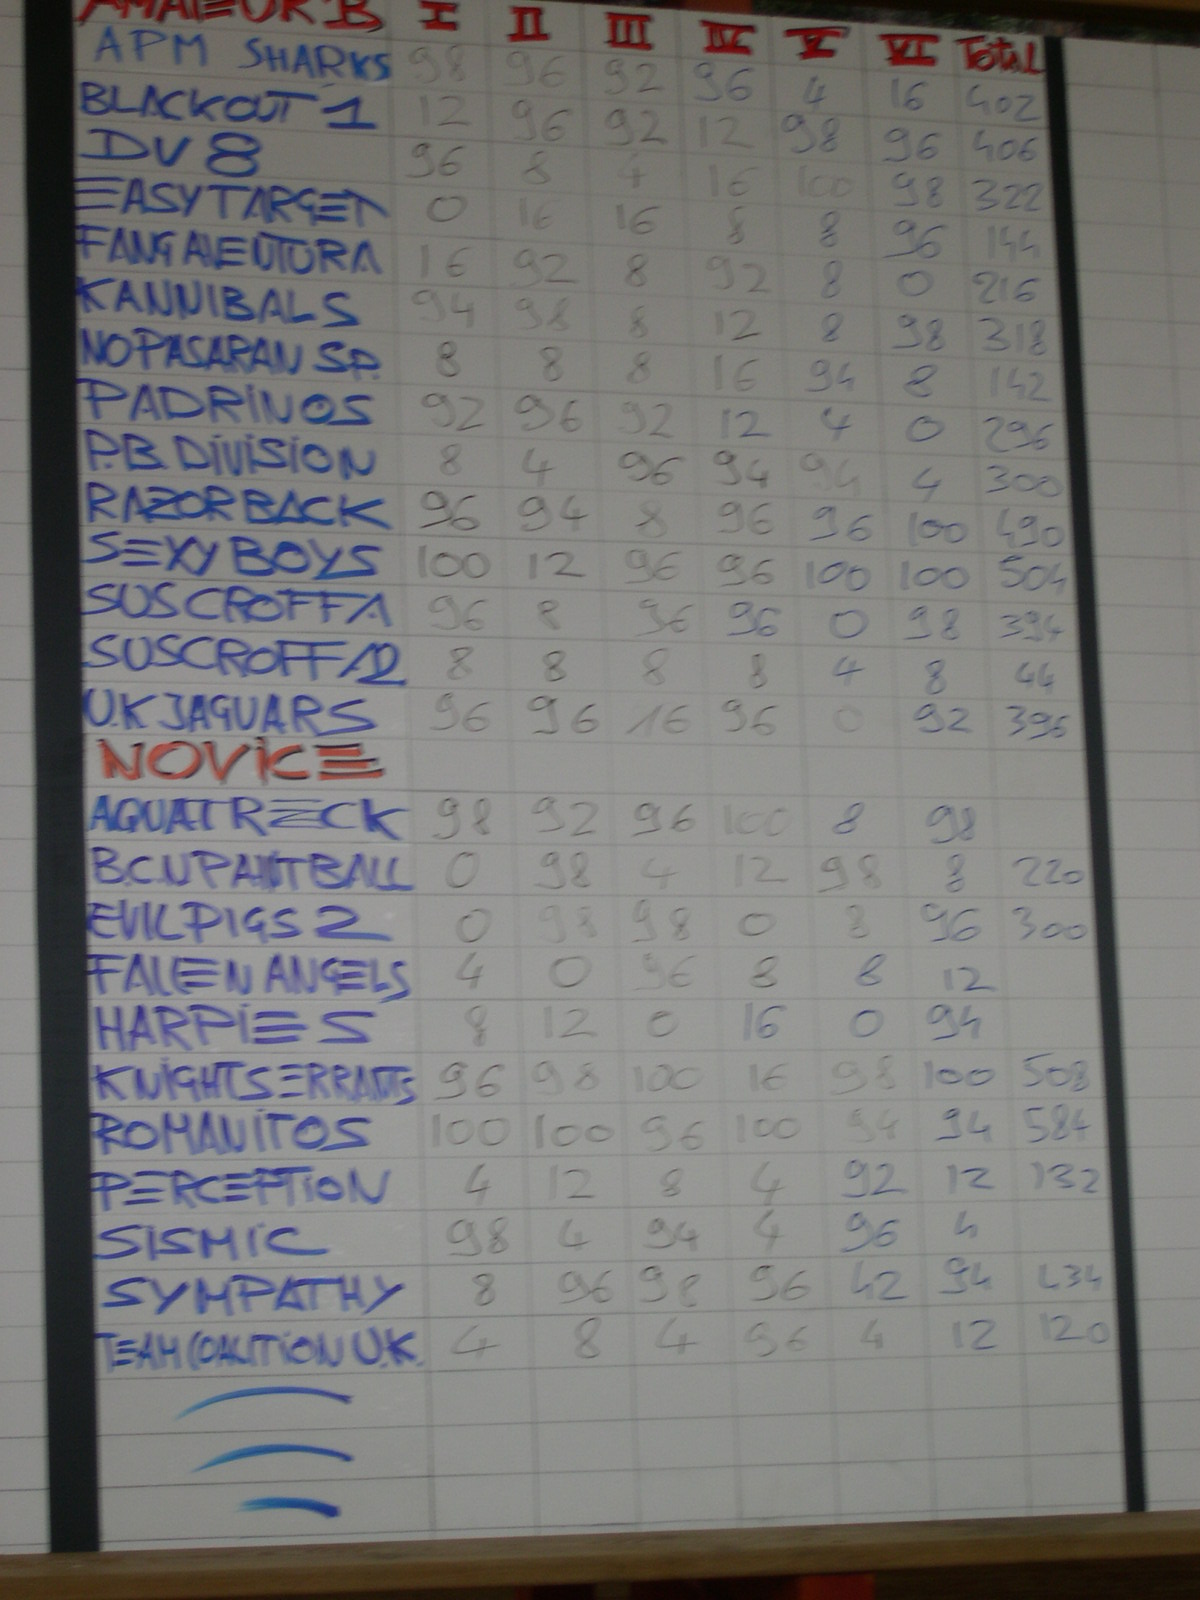 AMATEUR B I II III IV V VI Total
APM SHARKS 98 96 92 96 4 16 402
BLACKOUT 1 12 96 92 12 98 96 406
DV 8 96 8 4 16 100 98 322
EASY TARGET 0 16 16 8 8 96 144
FANG AVENTURA 16 92 8 92 8 0 216
KANNIBALS 94 98 8 12 8 98 318
NO PASARAN SP. 8 8 8 16 94 8 142
PADRINOS 92 96 92 12 4 0 296
P.B. DIVISION 8 4 96 94 94 4 300
RAZORBACK 96 94 8 96 96 100 490
SEXY BOYS 100 12 96 96 100 100 504
SUSCROFFA 1 96 8 96 96 0 98 394
SUSCROFFA 2 8 8 8 8 4 8 44
U.K JAGUARS 96 96 16 96 0 92 396
NOVICE
AQUATRECK 98 92 96 100 8 98
B.C.U PAINTBALL 0 98 4 12 98 8 220
EVIL PIGS 2 0 98 98 0 8 96 300
FALLEN ANGELS 4 0 96 8 8 12
HARPIES 8 12 0 16 0 94
KNIGHTS ERRANTS 96 98 100 16 98 100 508
ROMANITOS 100 100 96 100 94 94 584
PERCEPTION 4 12 8 4 92 12 132
SISMIC 98 4 94 4 96 4
SYMPATHY 8 96 98 96 42 94 434
TEAM COALITION U.K. 4 8 4 96 4 12 120